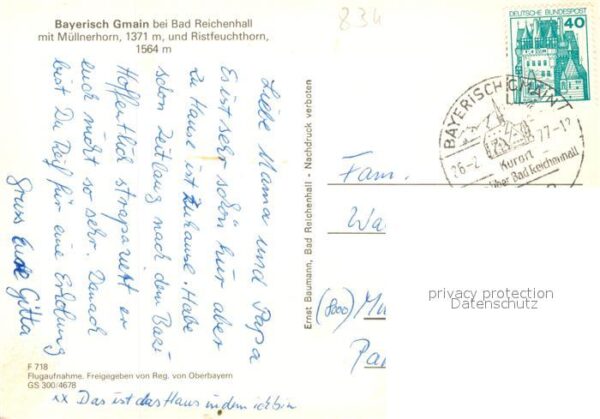 Bayerisch Gmain bei Bad Reichenhall
mit Müllnerhorn, 1371 m, und Ristfeuchthorn,
1564 m
834
DEUTSCHE BUNDESPOST
40
BAYERISCH GMAIN 1
26.-2 77-12
Kurort
über Bad Reichenhall
Liebe Mama und Papa
Es ist sehr schön hier aber
zu Hause ist Zuhause. Habe
schon Zeitlang nach dem Bazi
Hoffentlich strapaziert er
euch nicht so sehr. Danach
bist Du Reif für eine Erholung
Gruss Eure Gitta
Ernst Baumann, Bad Reichenhall - Nachdruck verboten
Fam.
Wa
(8000) Mü
Pa
privacy protection
Datenschutz
F 718
Flugaufnahme. Freigegeben von Reg. von Oberbayern
GS 300/4678
xx Das ist das Haus in dem ich bin